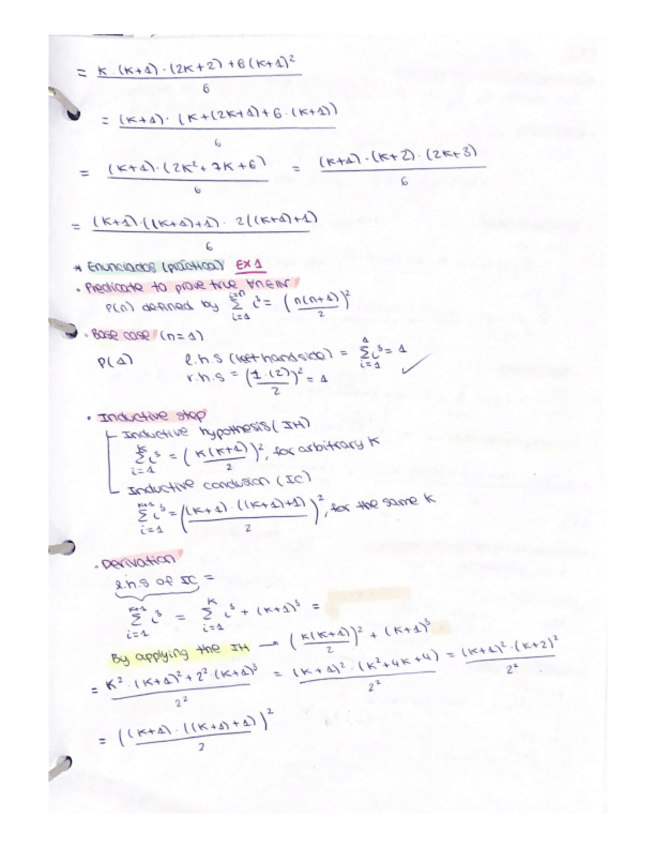 = K·(K+1)·(2K+2)+6(K+1)² / 6
= (K+1)·(K+(2K+1)+6·(K+1)) / 6
= (K+1)·(2K²+7K+6) / 6 = (K+1)·(K+2)·(2K+3) / 6
= (K+1)·((K+1)+1)·2((K+1)+1) / 6
* Enunciados (práctica) EX 1
· Predicate to prove true ∀n∈ℕ
P(n) defined by ∑_{i=1}^{i=n} i³ = (n(n+1)/2)²
· Base case (n=1)
P(1) l.h.s (left hand side) = ∑_{i=1}^{1} i³ = 1
r.h.s = (1·(2)/2)² = 1 ✓
· Inductive step
Inductive hypothesis (IH)
∑_{i=1}^{K} i³ = (K(K+1)/2)², for arbitrary K
Inductive conclusion (IC)
∑_{i=1}^{K+1} i³ = ((K+1)·((K+1)+1)/2)², for the same K
· Derivation
l.h.s of IC =
∑_{i=1}^{K+1} i³ = ∑_{i=1}^{K} i³ + (K+1)³ =
By applying the IH → (K(K+1)/2)² + (K+1)³
= K²·(K+1)²+2²·(K+1)³ / 2² = (K+1)²·(K²+4K+4) / 2² = (K+1)²·(K+2)² / 2²
= ((K+1)·((K+1)+1)/2)²